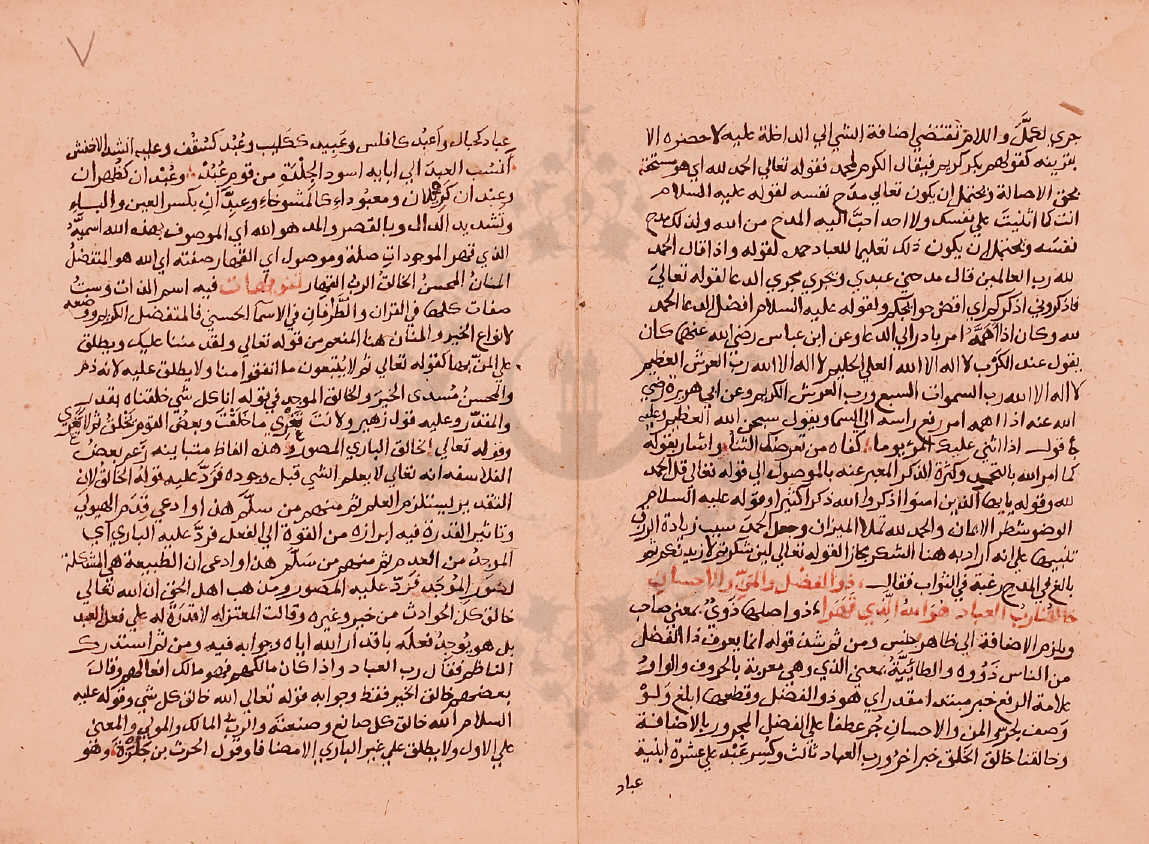 جري لعمل واللام تقتضي اضافة الشي الي الداخلة عليه لا حصره الا
بقرينه كقولهم بكر كريم فيقال الكرم لمحمد فقوله تعالي الحمد لله اي هو مستحقه
بحق الاصالة ويحتمل ان يكون تعالي مدح نفسه لقوله عليه السلام
انت كما اثنيت علي نفسك ولا احد احب اليه المدح من الله ولذلك مدح
نفسه ويحتمل ان يكون ذلك تعليما للعباد حمده لقوله واذا قال الحمد
لله رب العالمين قال مدحني عبدي ويجري مجري الدعا لقوله تعالي
فاذكروني اذكركم اي اقض حوايجكم ولقوله عليه السلام افضل الدعا الحمد
لله وكان اذا اهمه امر بادر الي الدعا وعن ابن عباس رضي الله عنهما كان
يقول عند الكرب لا اله الا الله العلي الحليم لا اله الا الله رب العرش العظيم
لا اله الا الله رب السموات السبع ورب العرش الكريم وعن ابي هريره رضي
الله عنه اذا اهمه امر رفع راسه الي السما ويقول سبحن الله العظيم وعليه
قول اذا اثني عليك المرء يوما كفاه من تعرضك الثنا واشار بقوله
كما امر الله بالتحميد وكثرة الذكر المعبر عنه بالموصول الي قوله تعالي قل الحمد
لله وقوله يا ايها الذين امنوا اذكروا الله ذكرا كثيرا وقوله عليه السلام
الوضو شطر الايمان والحمد لله تملا الميزان وجعل الحمد سبب زيادة الرزق
تنبيها علي انه اراد به هنا الشكر مجازا لقوله تعالي لين شكرتم لازيدنكم ثم
بالغ في المدح رغبة في الثواب فقال ذو الفضل والمن والاحسان
خالقنا رب العباد هو الله الذي قهرا ذو اصلها ذوي بمعني صاحب
ويلزم الاضافة الي ظاهر جنس ومن ثم شذ قوله انما يعرف ذا الفضل
من الناس ذووه والطائية بمعني الذي وهي معربة بالحروف والواو
علامة الرفع خبر مبتدا مقدر اي هو ذو الفضل وقطعها ابلغ ولو
وصف بجر المن والاحسان جر عطفا علي الفضل المجرور بالاضافة
وخالقنا خالق الخلق خبر اخر ورب العباد ثالث وكسر عبد علي عشرة ابنية
عباد
٧
عباد كجبال واعبد كافلس وعبيد ككليب وعبد كسقف وعليه انشد الاخفش
انسب العبد الي ابايه اسود الجلدة من قوم عبد وعبدان كظهران
وعبدان كغربلان ومعبوداء كالمشيوخاء وعبدان بكسر العين والباء
وتشديد الدال وبالقصر والمد هو الله اي الموصوف بهذه الله اسمية
الذي قهر الموجودات صلة وموصول اي القهار صفته اي الله هو المتفضل
المنان المحسن الخالق الرب القهار فيه اسم الذات وست
صفات كلها في القران والطرفان في الاسما الحسني فالمتفضل الكريم ووضعه
لانواع الخير والمنان هنا المنعم من قوله تعالي ولقد مننا عليك ويطلق
علي المن بها كقوله تعالي ثم لا يتبعون ما انفقوا منا ولا يطلق عليه لانه ذم
والمحسن مسدي الخير والخالق الموجد في قوله انا كل شي خلقناه بقدر
والمقدر وعليه قول زهير ولانت تفري ما خلقت وبعض القوم يخلق ثم لا يفري
وقوله تعالي الخالق الباري المصور وهذه الفاظ متباينه زعم بعض
الفلاسفه انه تعالي لا يعلم الشي قبل وجوده فرد عليه قوله الخالق لان
التقدير يستلزم العلم ثم منهم من سلم هذا وادعي قدم الهيولي
وتاثير القدرة فيه ابرازه من القوة الي الفعل فرد عليه الباري اي
الموجد من العدم ثم منهم من سلم هذا وادعي ان الطبيعة هي المشكلة
لصور الموجد فرد عليه المصور ومذهب اهل الحق ان الله تعالي
خالق كل الحوادث من خير وغيره وقالت المعتزله لا قدرة له علي فعل العبد
بل هو يوجد فعله باقدار الله اياه وجوابه فيه ومن ثم استدرك
الناظم فقال رب العباد واذا كان مالكهم فهو مالك افعالهم وقالت
بعضهم خالق الخير فقط وجوابه قوله تعالي الله خالق كل شي وقوله عليه
السلام الله خالق كل صانع وصنعته والرب المالك والمولي والمعني
علي الاول ولا يطلق علي غير الباري الا مضافا وقول الحرث بن حلزة وهو